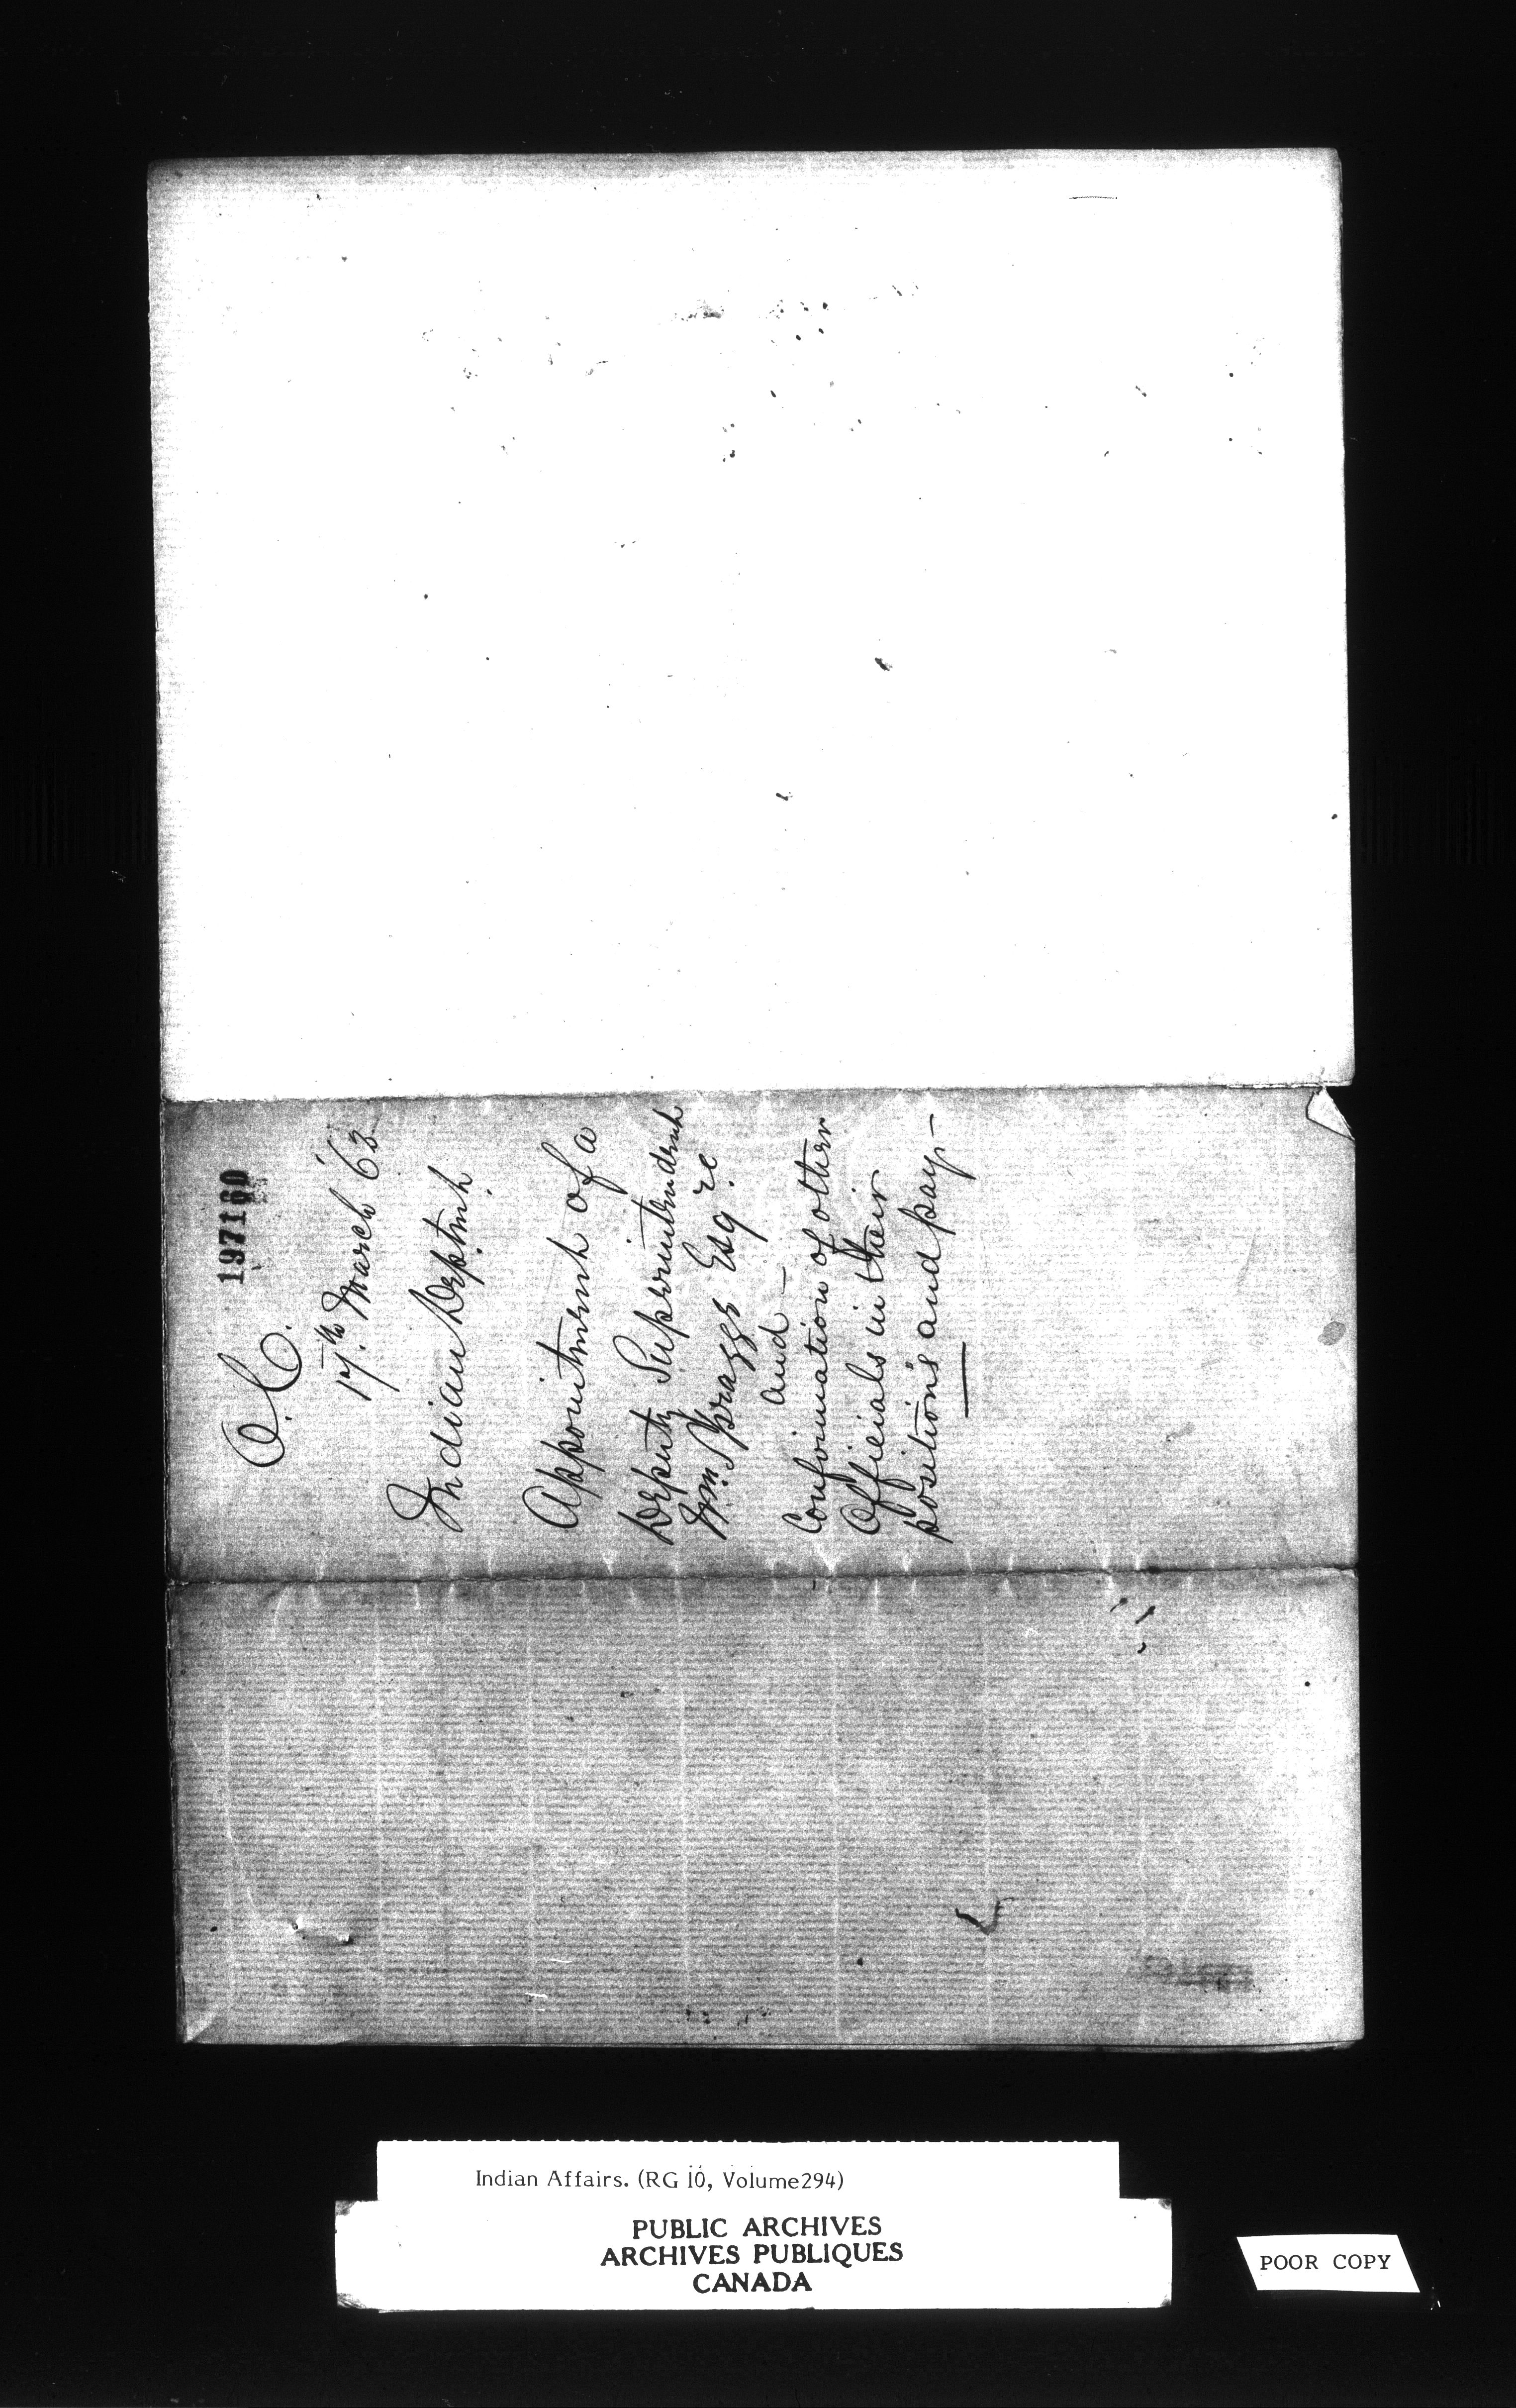 197160
O.C.
17th. March '63
Indian Deptmt.
Appointment of a
Deputy Superintendent
Wm. Spragge Esq. &c
and —
Confirmation of other
Officials in their
positions and pay —
Indian Affairs. (RG 10, Volume 294)
PUBLIC ARCHIVES
ARCHIVES PUBLIQUES
CANADA
POOR COPY